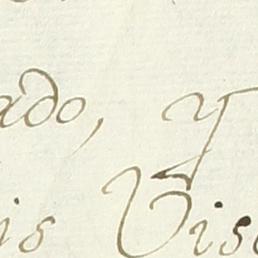 ado, y
is Vis